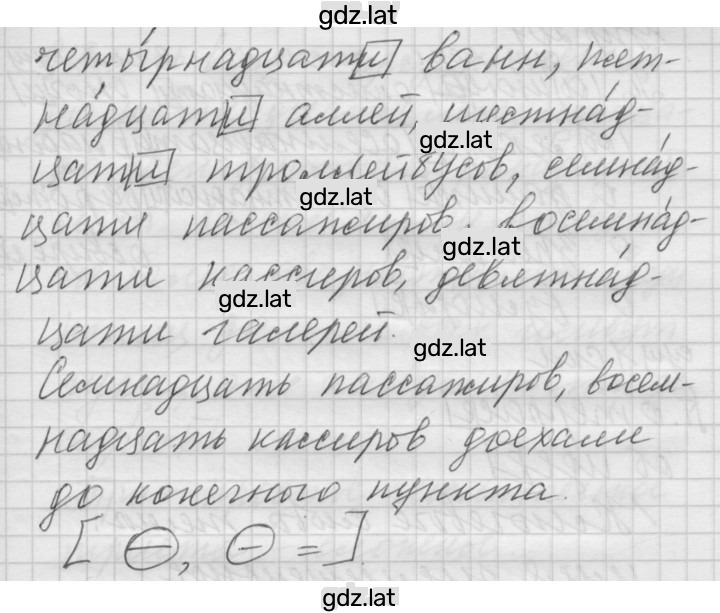 gdz.lat
четы́рнадцати ванн, пят-
на́дцати аллей, шестна́д-
gdz.lat
цати троллейбусов, семна́д-
gdz.lat
цати пассажиров, восемна́д-
gdz.lat
цати кассиров, девятна́д-
gdz.lat
цати галерей.
gdz.lat
Семнадцать пассажиров, восем-
надцать кассиров доехали
до конечного пункта.
[ ⊖, ⊖ = ]
gdz.lat